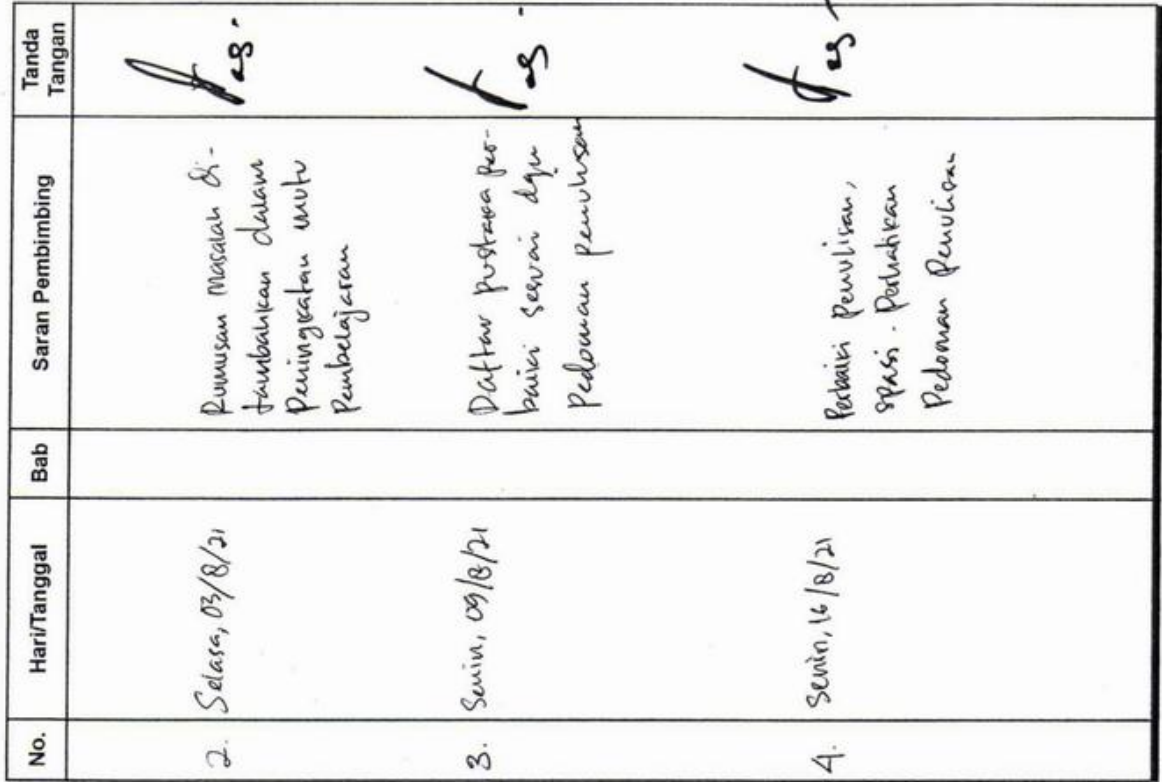 No. Hari/Tanggal Bab Saran Pembimbing Tanda Tangan
2. Selasa, 03/8/21 Rumusan masalah di-
tambahkan dalam
Peningkatan mutu
Pembelajaran
3. Senin, 09/8/21 Daftar pustaka per-
baiki sesuai dgn
Pedoman penulisan
4. Senin, 16/8/21 Perbaiki Penulisan,
spasi. Perhatikan
Pedoman Penulisan